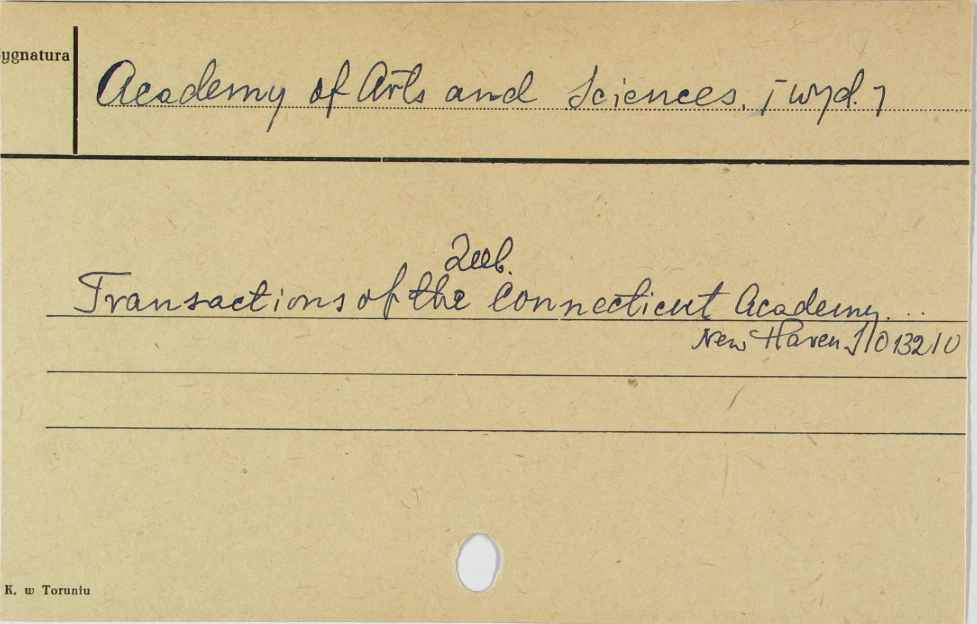 Sygnatura
Academy of Arts and Sciences. [wyd.]
Zob.
Transactions of the Connecticut Academy...
New Haven. J/013210
K. w Toruniu